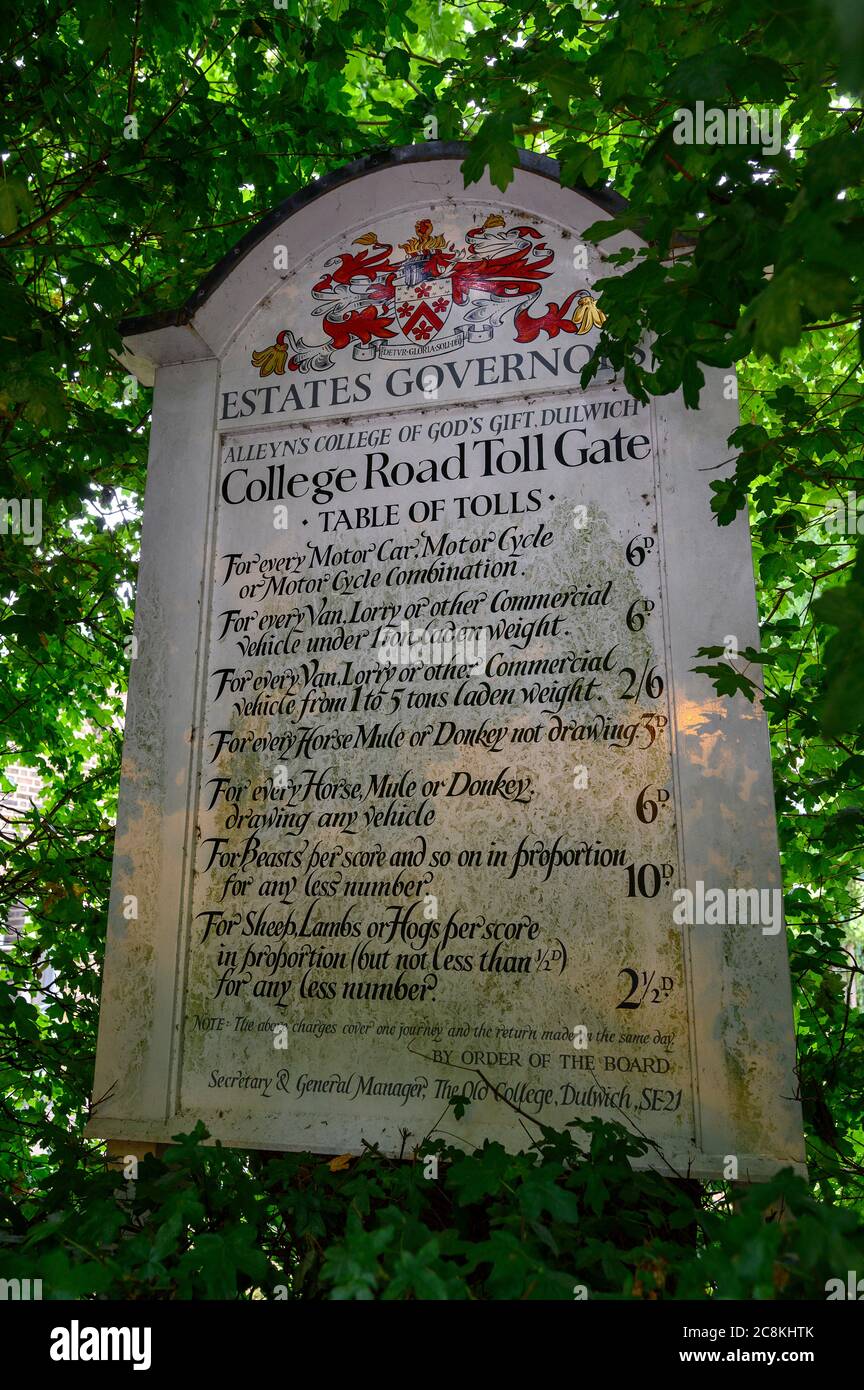 DETVR·GLORIA·SOLI·DEO
ESTATES GOVERNORS
ALLEYN'S COLLEGE OF GOD'S GIFT, DULWICH
College Road Toll Gate
· TABLE OF TOLLS ·
For every Motor Car, Motor Cycle
or Motor Cycle Combination. 6D.
For every Van, Lorry or other Commercial
vehicle under 1 ton laden weight. 6D.
For every Van, Lorry or other Commercial
vehicle from 1 to 5 tons laden weight. 2/6
For every Horse Mule or Donkey not drawing. 3D.
For every Horse, Mule or Donkey,
drawing any vehicle 6D.
For Beasts per score and so on in proportion
for any less number 10D.
For Sheep, Lambs or Hogs per score
in proportion (but not less than ½D)
for any less number. 2½D.
NOTE: The above charges cover one journey and the return made on the same day.
BY ORDER OF THE BOARD
Secretary & General Manager, The Old College, Dulwich, SE21
alamy
Image ID: 2C8KHTK
www.alamy.com